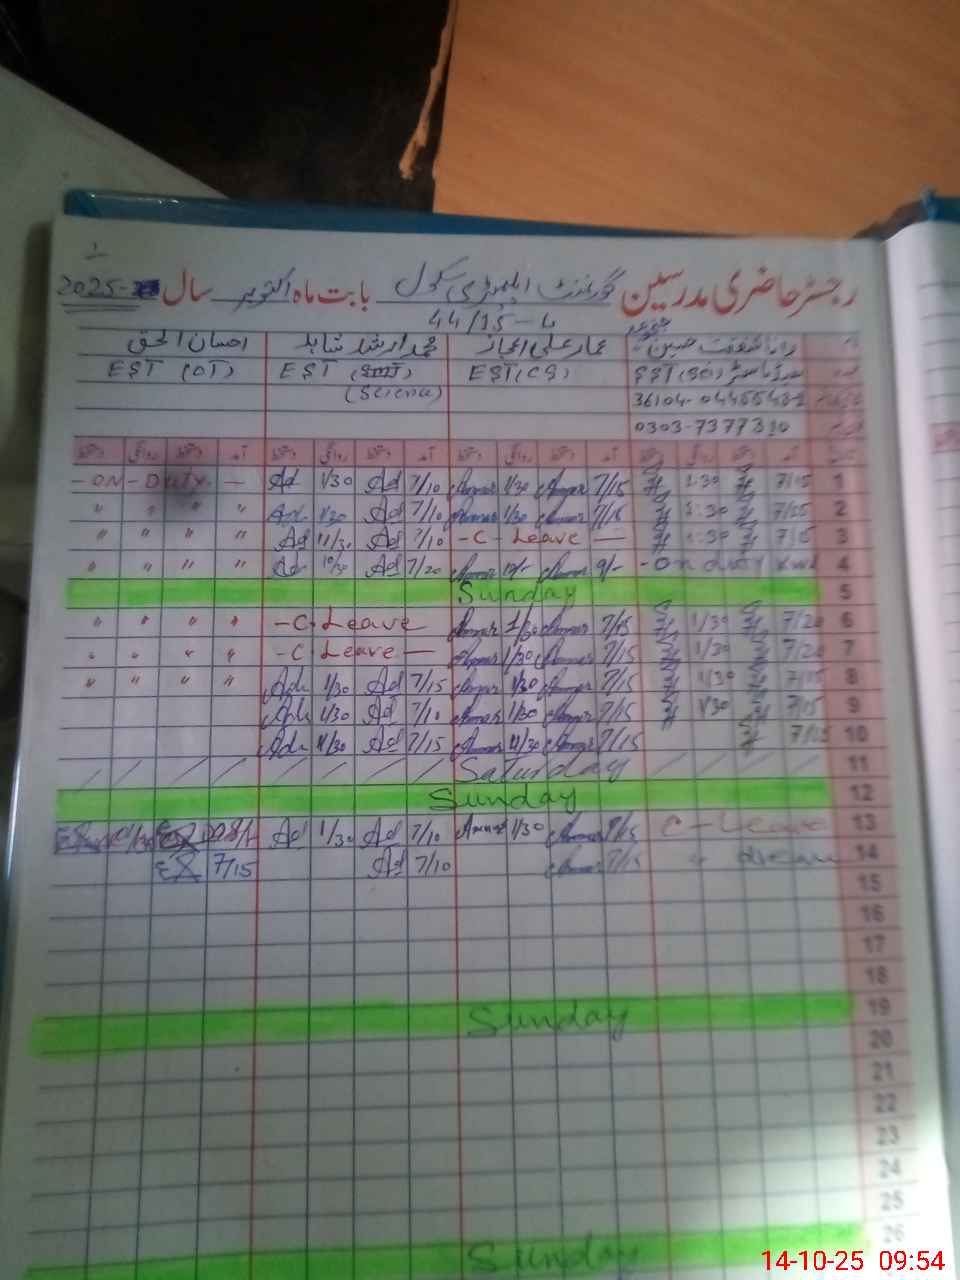 1
رجسٹر حاضری مدرسین گورنمنٹ ایلیمنٹری سکول بابت ماہ اکتوبر سال 2025
44/15-L
رانا شفقت حسین عمار علی اعجاز محمد ارشد شاہد احسان الحق
SST(SC) EST(CS) EST EST (OT)
(Science)
36104-0445548-1
0303-7377310
دستخط روانگی دستخط آمد دستخط روانگی دستخط آمد دستخط روانگی دستخط آمد دستخط روانگی دستخط آمد
- ON - DUTY - Ad 1/30 Ad 7/10 Ammar 1/30 Ammar 7/15 1:30 7/15 1
" " " " Ad 1/30 Ad 7/10 Ammar 1/30 Ammar 7/15 1:30 7/15 2
" " " " Ad 11/30 Ad 7/10 - C - Leave — 7/15 3
" " " " Ad 10/30 Ad 7/20 Ammar Ammar 9/- - On duty 4
Sunday 5
" " " " - C. Leave Ammar 1/30 Ammar 7/15 1/30 7/20 6
" " " " - C Leave — Ammar 1/30 Ammar 7/15 1/30 7/20 7
" " " " Ad 1/30 Ad 7/15 Ammar 1/30 Ammar 7/15 1/30 7/15 8
Ad 1/30 Ad 7/10 Ammar 1/30 Ammar 7/15 1/30 7/15 9
Ad 11/30 Ad 7/15 Ammar 11/30 Ammar 7/15 7/15 10
Saturday 11
Sunday 12
Ad 1/30 Ad 7/10 Ammar 1/30 Ammar 7/15 C - Leave 13
7/15 Ad 7/10 Ammar 7/15 14
15
16
17
18
Sunday 19
20
21
22
23
24
25
Sunday 26
14-10-25 09:54